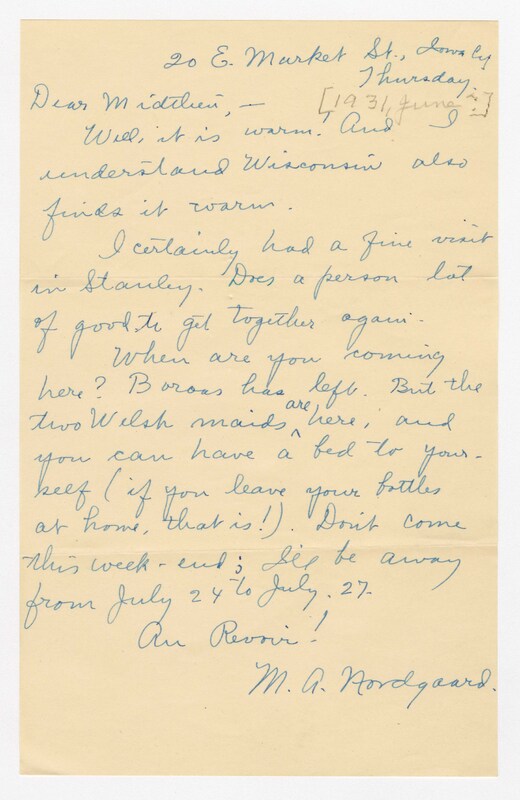 20 E. Market St., Iowa Cy
Thursday
Dear Midtlien, —
[1931, June]
Well, it is warm! And I
understand Wisconsin also
finds it warm.
I certainly had a fine visit
in Stanley. Does a person lot
of good to get together again.
When are you coming
here? Boraas has left. But the
two Welsh maids are here, and
you can have a bed to your-
self (if you leave your bottles
at home, that is!). Don't come
this week-end; I'll be away
from July 24 to July. 27.
Au Revoir!
M. A. Nordgaard.